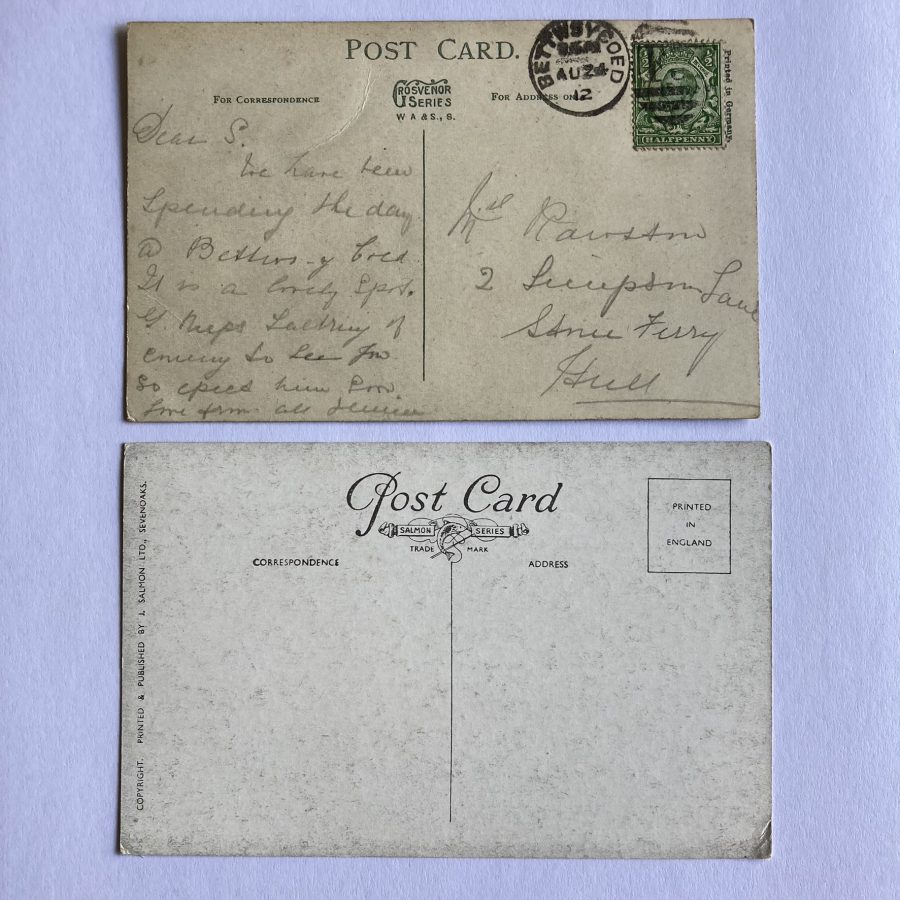 POST CARD.
GROSVENOR
SERIES
W A & S., S.
FOR CORRESPONDENCE
FOR ADDRESS ON
BETTWSYCOED
AU 24
12
HALFPENNY
Printed in Germany.
Dear S.
We have been
Spending the day
@ Bettws-y Coed
It is a lovely Spot.
G. Keeps
coming to See
So him
Love from all
Rawston
2 Simpson Lane
Stone Ferry
Hull
Post Card
SALMON SERIES
TRADE MARK
CORRESPONDENCE
ADDRESS
PRINTED
IN
ENGLAND
COPYRIGHT. PRINTED & PUBLISHED BY J. SALMON LTD., SEVENOAKS.